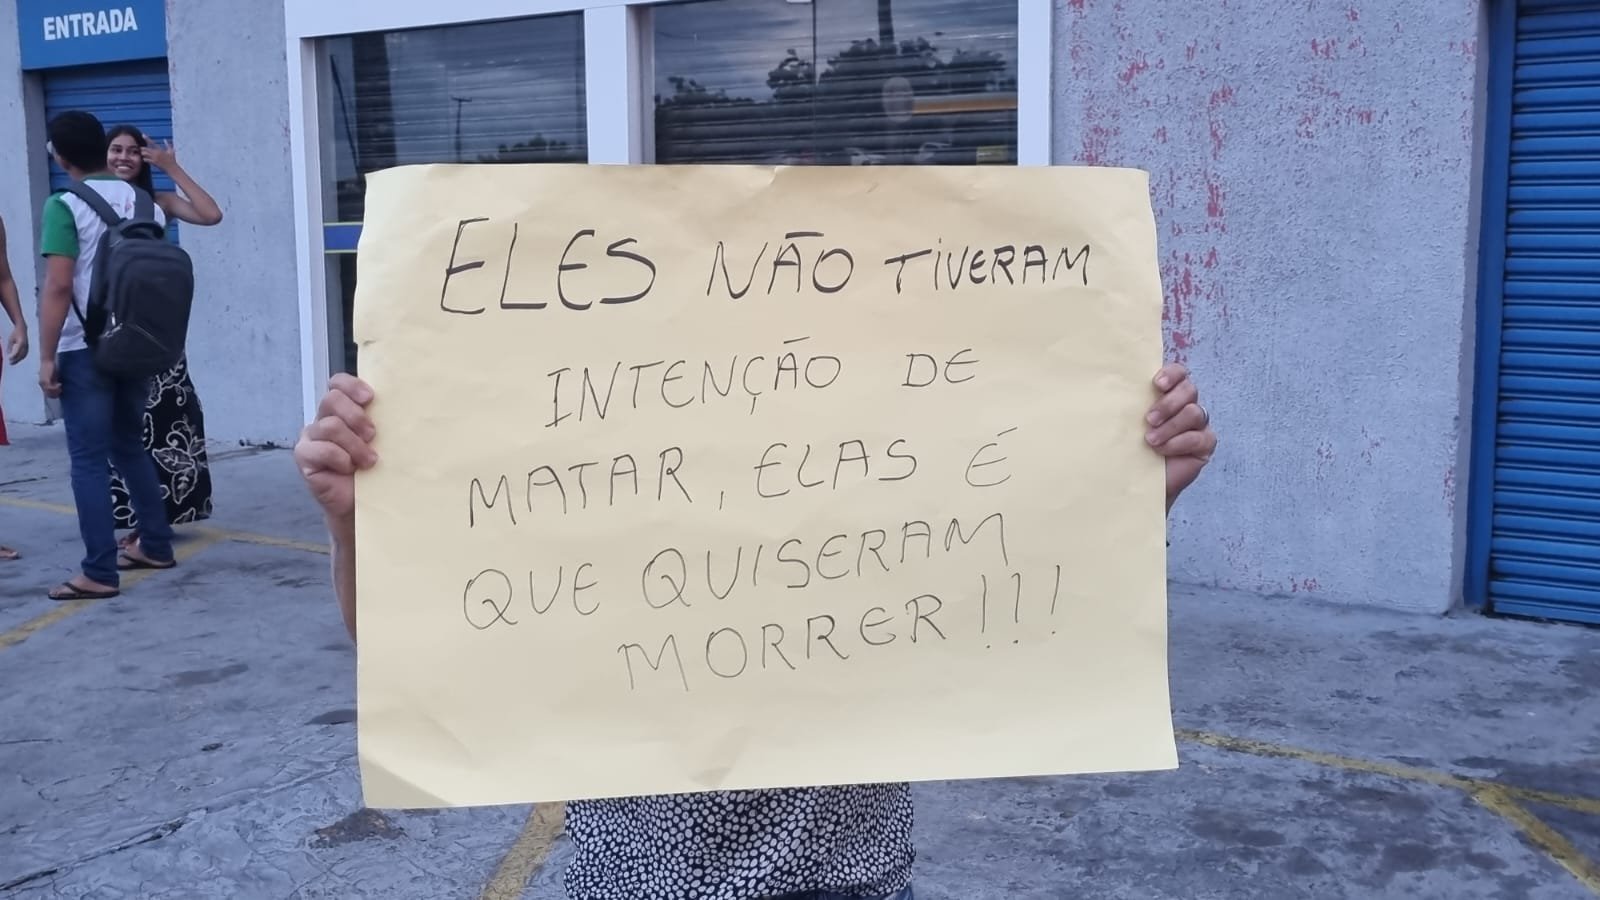 ENTRADA
ELES NÃO TIVERAM
INTENÇÃO DE
MATAR, ELAS É
QUE QUISERAM
MORRER!!!